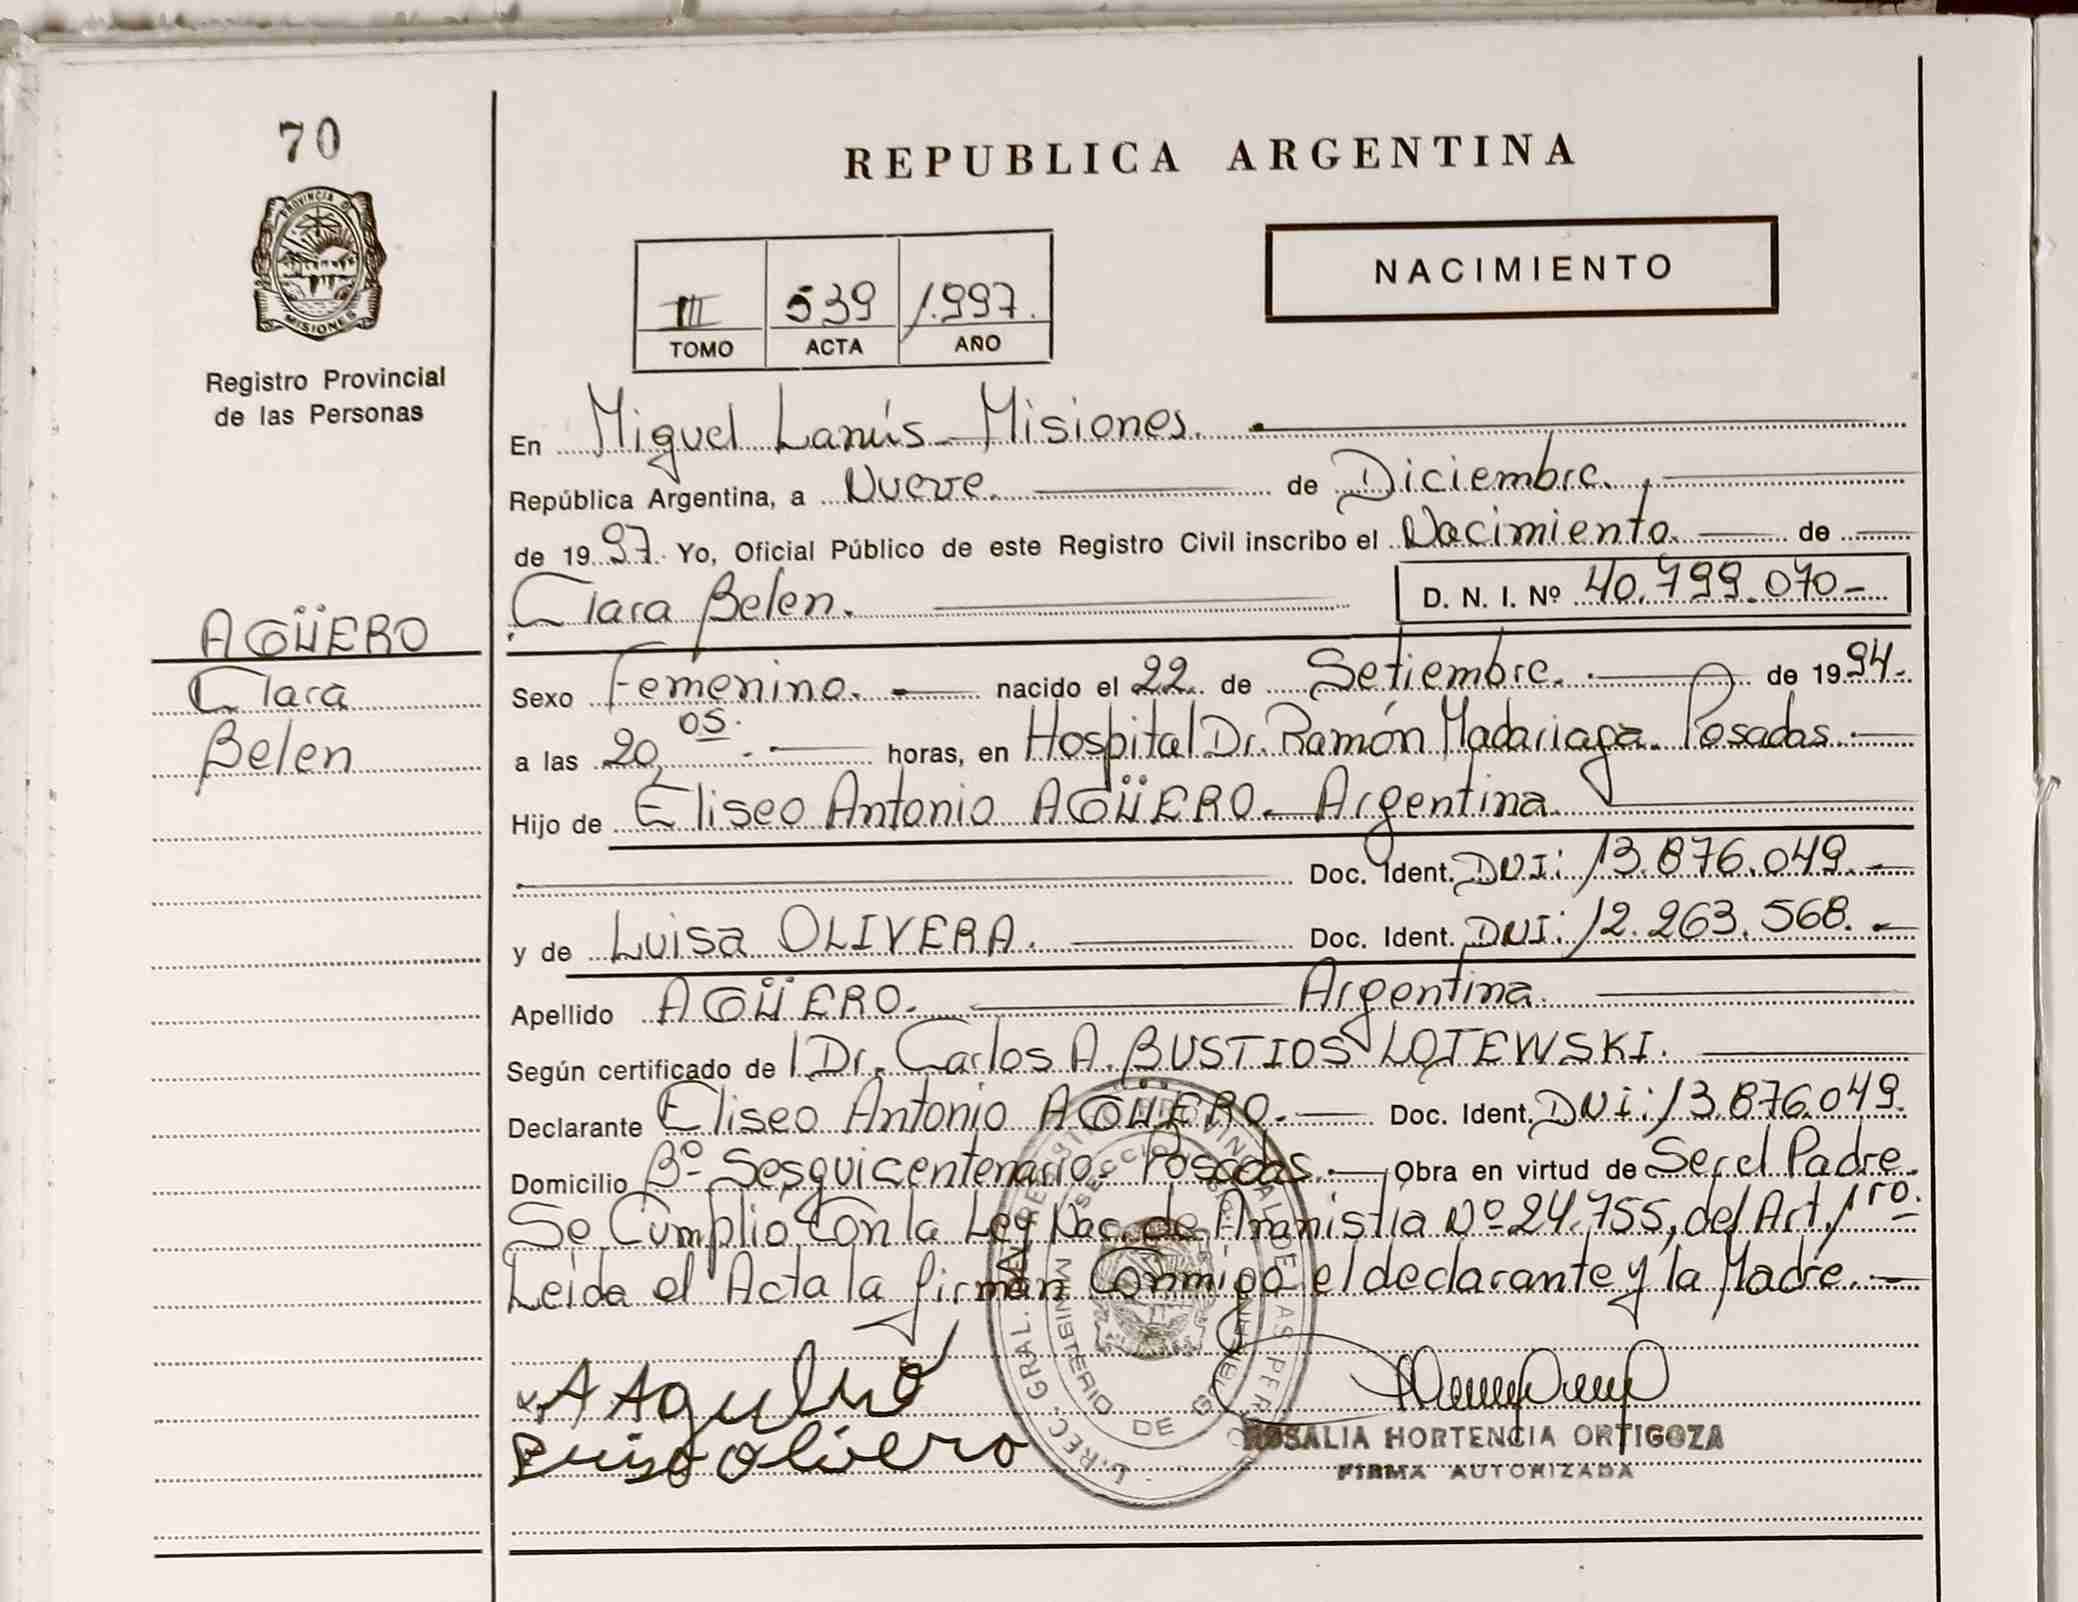 70
REPUBLICA ARGENTINA
PROVINCIA D
MISIONES
Registro Provincial
de las Personas
III 539 1.997.
TOMO ACTA AÑO
NACIMIENTO
En Miguel Lanús - Misiones.
República Argentina, a Nueve. de Diciembre.
de 1997. Yo, Oficial Público de este Registro Civil inscribo el Nacimiento. de
Clara Belen. D. N. I. Nº 40.799.070-
AGÜERO
Clara
Belen
Sexo Femenino. nacido el 22 de Setiembre. de 1994.
a las 20,05. horas, en Hospital Dr. Ramón Madariaga. Posadas.
Hijo de Eliseo Antonio AGÜERO. Argentina.
Doc. Ident. DNI: 13.876.049.-
y de Luisa OLIVERA. Doc. Ident. DNI: 12.263.568.-
Apellido AGÜERO. Argentina.
Según certificado de Dr. Carlos A. BUSTIOS LOTEWSKI.
Declarante Eliseo Antonio AGÜERO. Doc. Ident. DNi: 13.876.049.
Domicilio Bº Sesquicentenario. Posadas. Obra en virtud de Ser el Padre.
Se Cumplió Con la Ley Nac. de Amnistia Nº 24.755, del Art. 1ro.
Leida el Acta la firman Conmigo el declarante y la Madre.
MINISTERIO DE
ROSALIA HORTENCIA ORTIGOZA
FIRMA AUTORIZADA